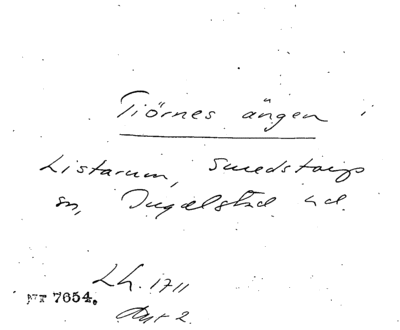 Tiörnes ängen i
Listarum, Smedstorps
sn, Ingelstad hd.
Lh. 1711
NT 7654.
Akt 2.